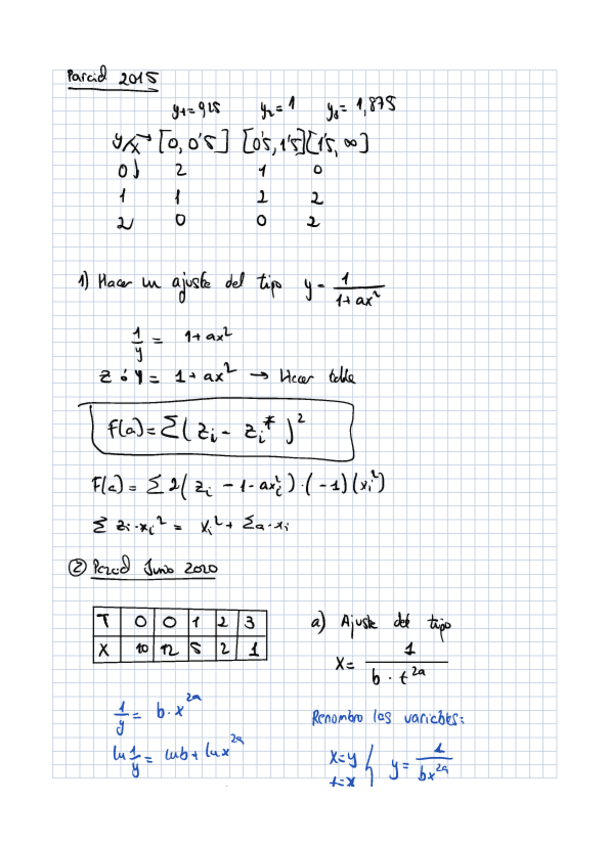 Parcial 2015
y₁=0,25 y₂=1 y₃=1,875
y/x → [0,0'5] [0'5,1'5] [1'5,∞]
0 2 1 0
1 1 2 2
2 0 0 2
1) Hacer un ajuste del tipo y = 1/(1+ax²)
1/y = 1+ax²
Z ó Y = 1+ax² → Hacer tabla
F(a) = Σ(zi - zi*)²
F(a) = Σ 2(zi - 1 - axi²)·(-1)(xi²)
Σ zi·xi² = xi² + Σa·xi
② Parcial Junio 2020
T 0 0 1 2 3
X 10 12 5 2 1
a) Ajuste del tipo
X = 1/(b·t^2a)
1/y = b·x^2a
ln 1/y = lnb + lnx^2a
Renombro las variables:
X=y
t=x
y = 1/(bx^2a)